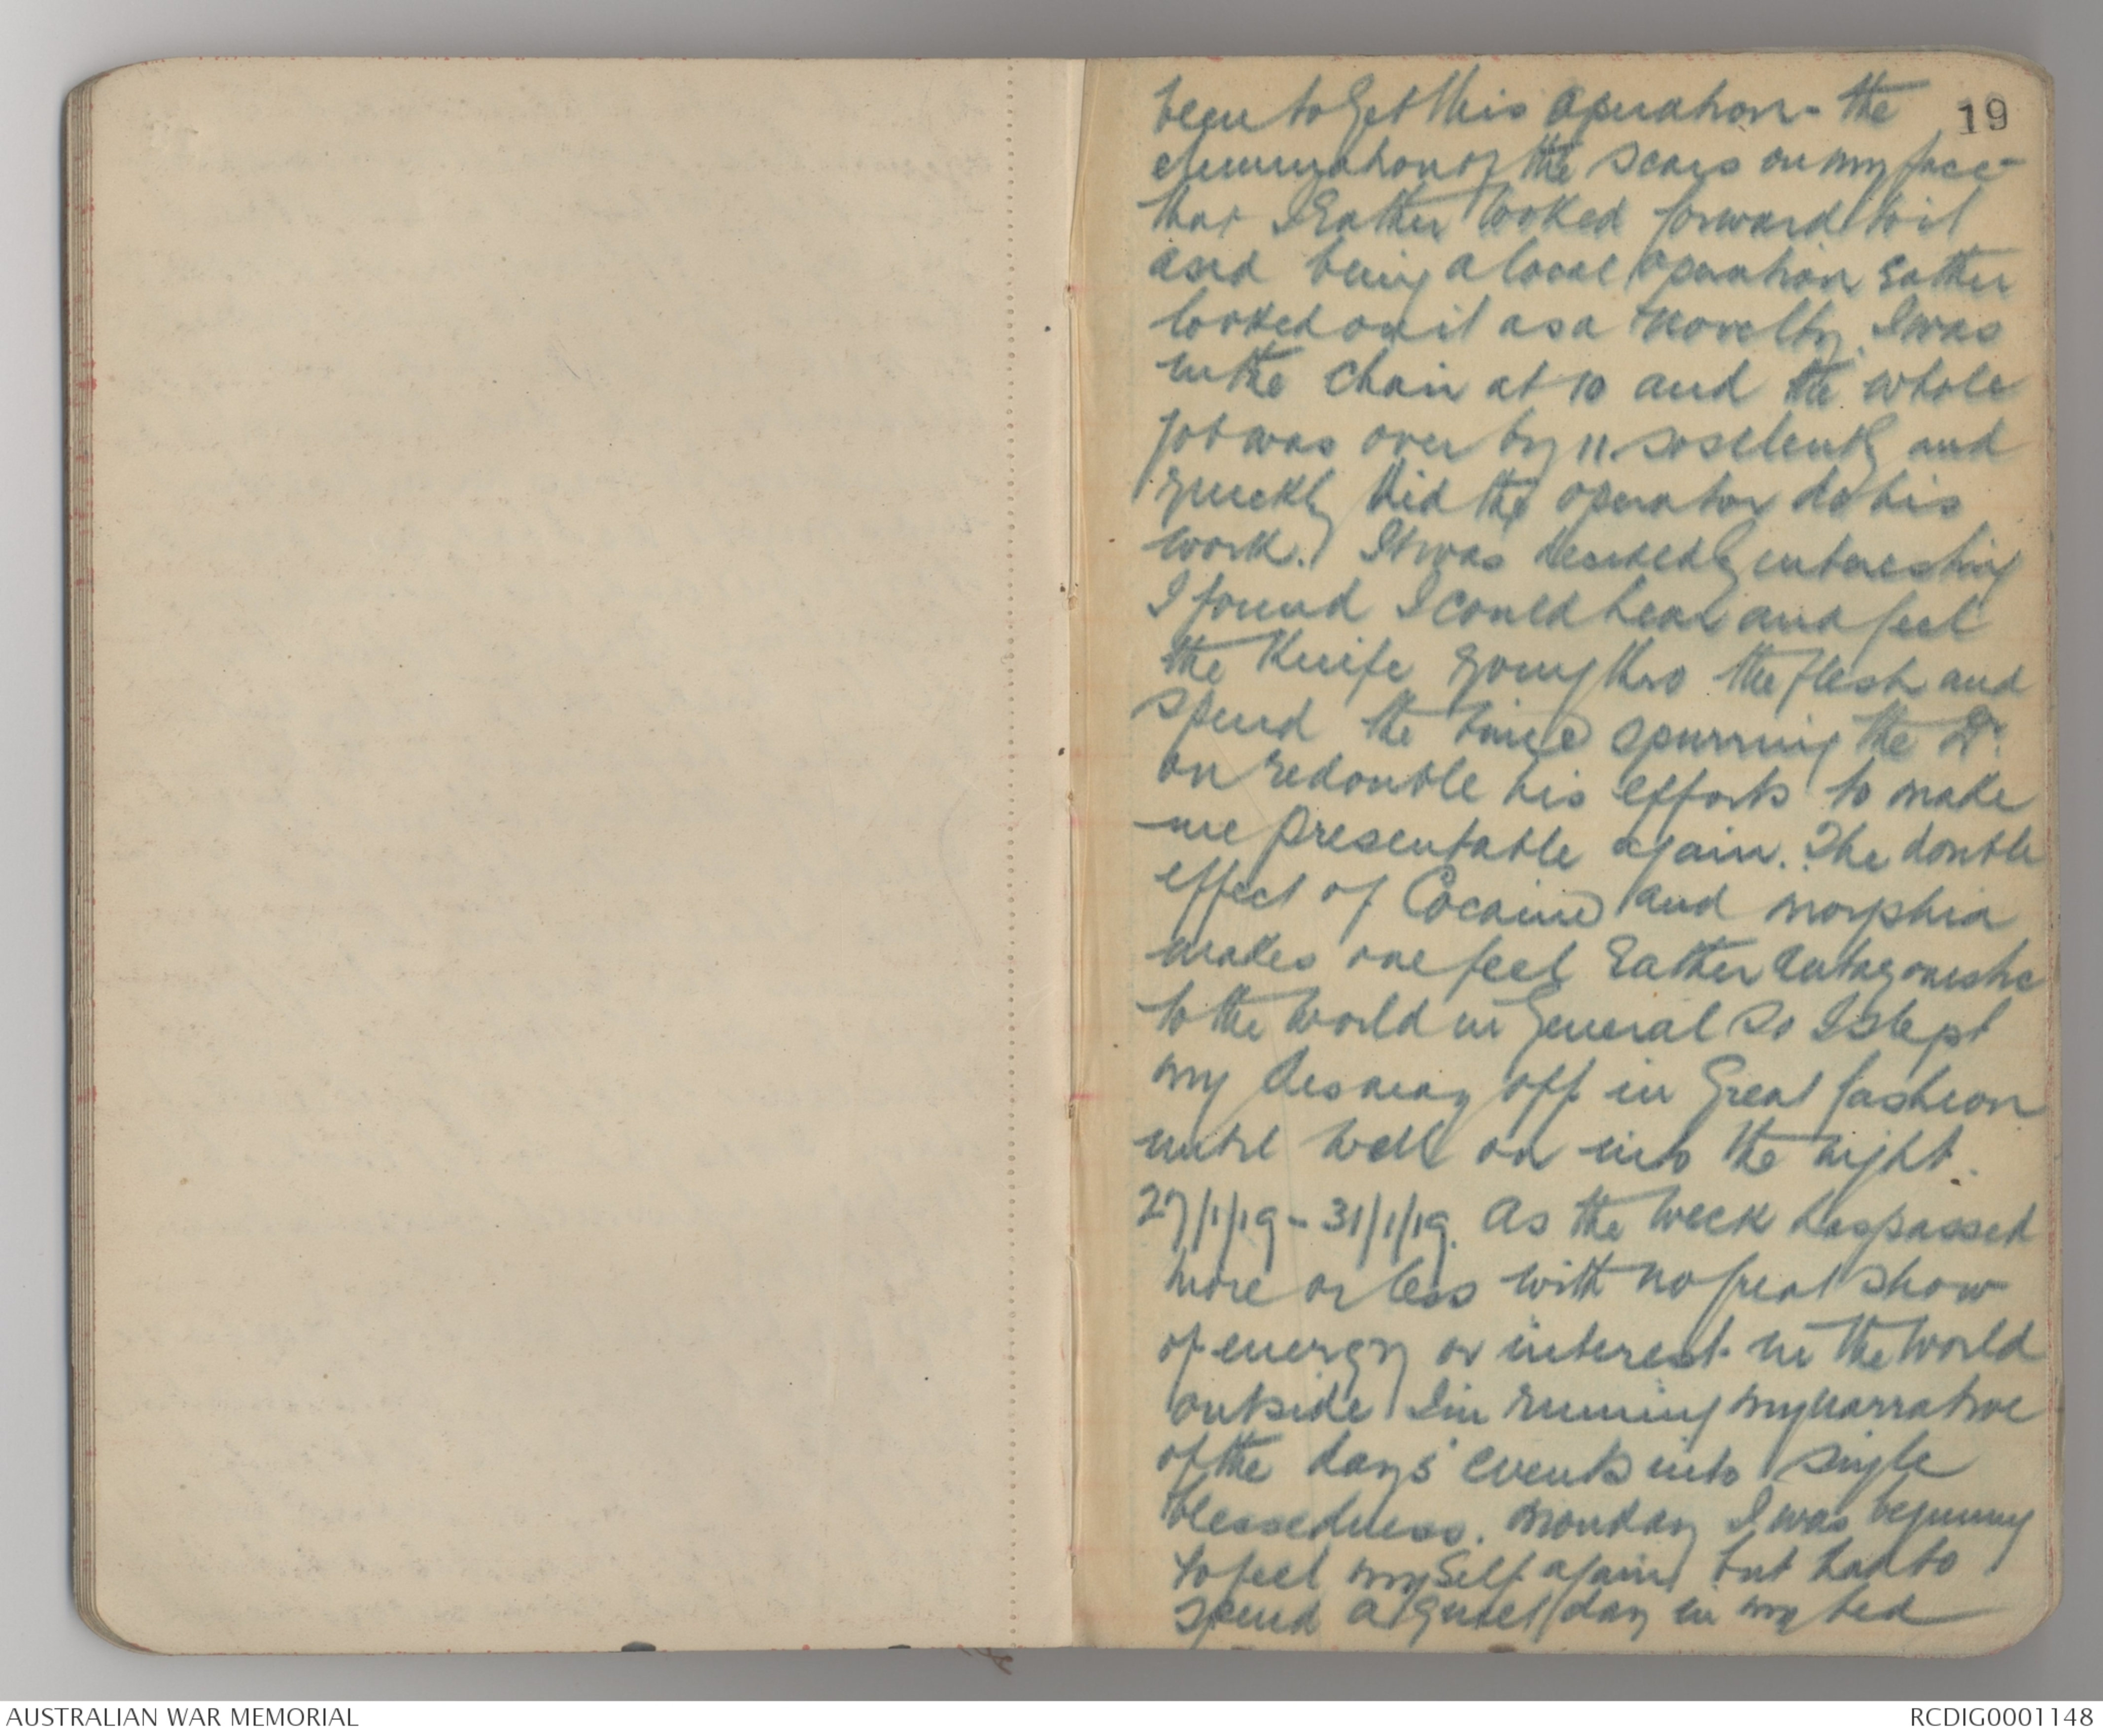 19
been to get this operation - the
elimination of the scars on my face -
that I rather looked forward to it
and being a local operation rather
looked on it as a novelty. I was
in the chair at 10 and the whole
job was over by 11. so silently and
quickly did the operator do his
work. It was decidedly interesting
I found I could hear and feel
the knife going thro the flesh and
spend the time spurring the Dr.
on redouble his efforts to make
me presentable again. The double
effect of Cocaine and morphia
makes one feel rather antagonistic
to the world in General so I slept
my dismay off in Great fashion
until well on into the night.
27/1/19 - 31/1/19. As the week has passed
more or less with no great show
of energy or interest in the world
outside I'm running my narrative
of the days' events into single
blessedness. Monday I was beginning
to feel myself again but had to
spend a quiet day in my bed
AUSTRALIAN WAR MEMORIAL
RCDIG0001148